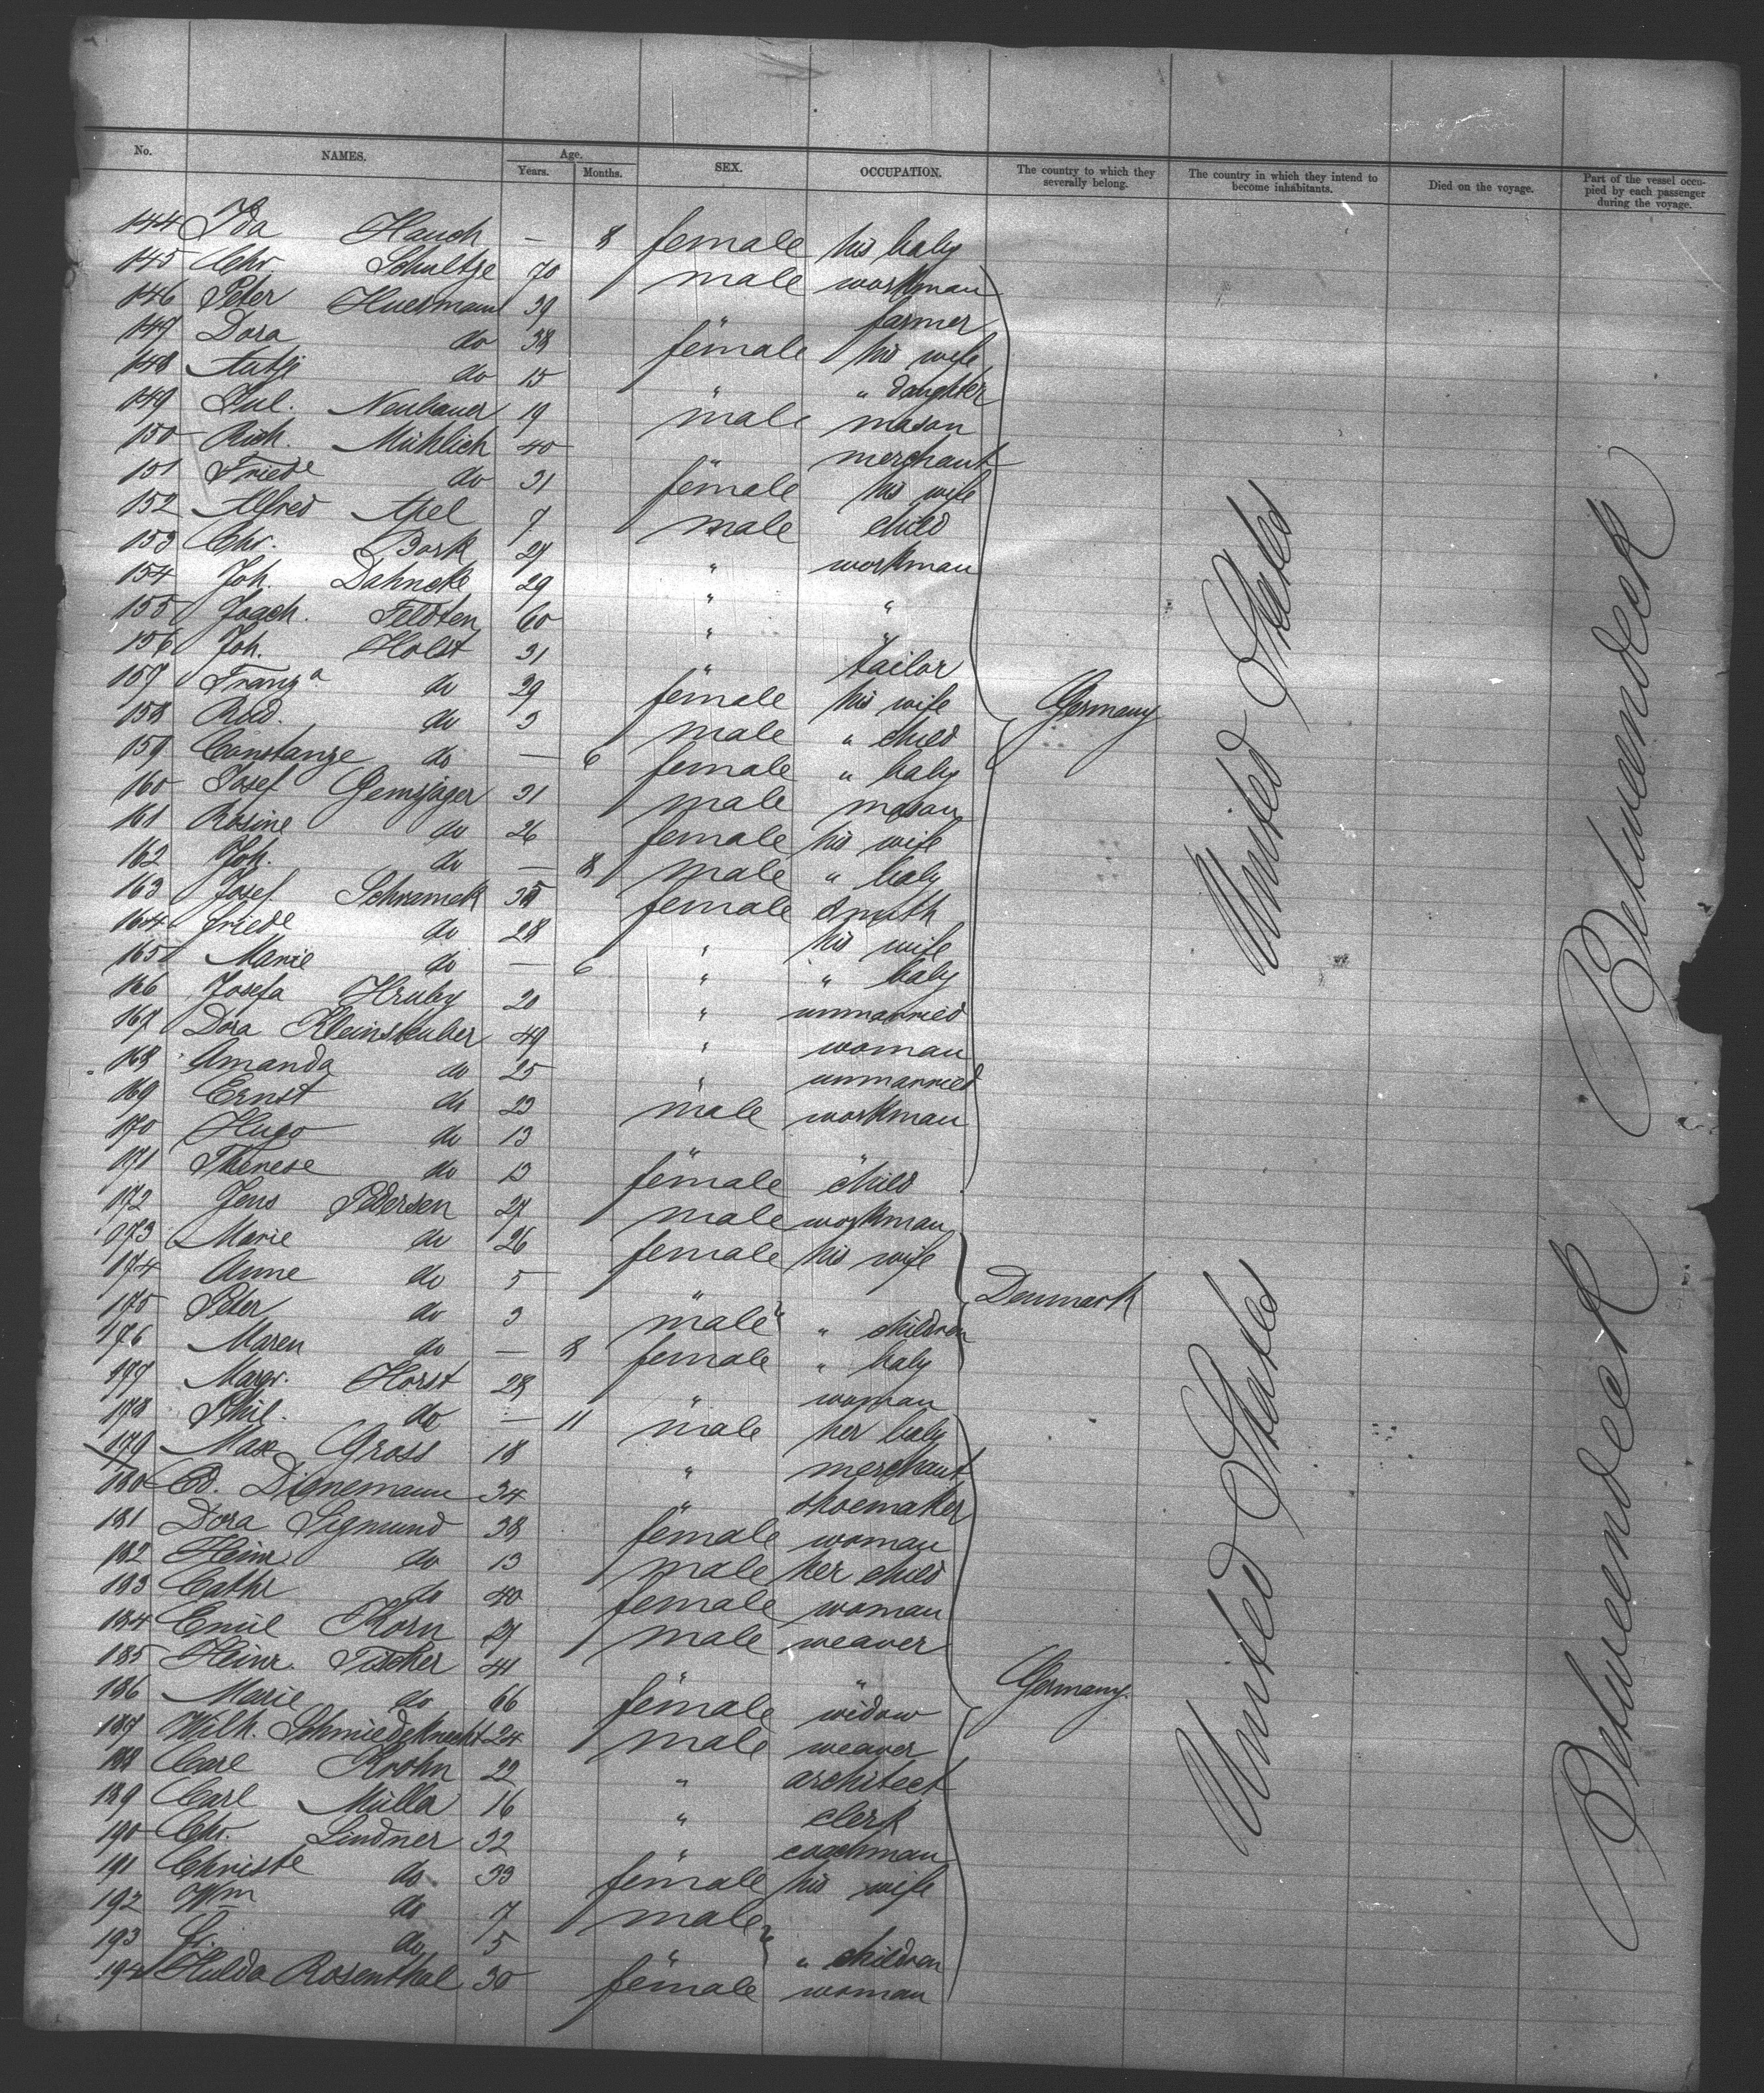 No. NAMES. Age. Years. Months. SEX. OCCUPATION. The country to which they severally belong. The country in which they intend to become inhabitants. Died on the voyage. Part of the vessel occupied by each passenger during the voyage.
144 Ida Hauch — 8 female his baby
145 Chr Schultze 70 male workman
146 Peter Huermann 39 " farmer
147 Dora do 38 female his wife
148 Antje do 15 " " daughter
149 Jul. Neubauer 19 male mason
150 Rich. Mühlich 40 " merchant
151 Friede do 31 female his wife
152 Alfred Apel 7 male child
153 Chr. Bork 27 " workman
154 Joh. Dahncke 29 " "
155 Joach. Feldten 60 " "
156 Joh. Holst 31 " tailor
157 Franza do 29 female his wife
158 Rud. do 3 male " child
159 Constanze do — 6 female " baby
160 Josef Gemsjäger 31 male mason
161 Rosine do 26 female his wife
162 Joh. do — 8 male " baby
163 Josef Schramek female smith
164 Friede do 28 " his wife
165 Marie do — 6 " " baby
166 Josefa Hruby 20 " unmarried
167 Dora Kleinsteuber 49 " woman
168 Amanda do 25 " unmarried
169 Ernst do 23 male workman
170 Hugo do 13 " "
171 Therese do 13 female child
Germany
172 Jens Pedersen 27 male workman
173 Marie do 26 female his wife
174 Anne do 5 "
175 Peter do 3 male " children
176 Maren do — 8 female " baby
Denmark
177 Margr. Horst 28 " woman
178 Phil. do — 11 male her baby
179 Max Gross 18 " merchant
180 Ed. Dienemann 34 " shoemaker
181 Dora Sigmund 38 female woman
182 Heinr do 13 male her child
183 Cathr do 40 female woman
184 Emil Korn 27 male weaver
185 Heinr. Fischer 41 " "
186 Marie do 66 female widow
187 Wilh. Schmiedeknecht 24 male weaver
188 Carl Krohn 22 " architect
189 Carl Müller 16 " clerk
190 Chr. Lindner 32 " coachman
191 Christe do 33 female his wife
192 Wm do 7 male
193 do 5 " " children
194 Hulda Rosenthal 30 female woman
Germany.
United States
United States
Betweendeck
Betweendeck